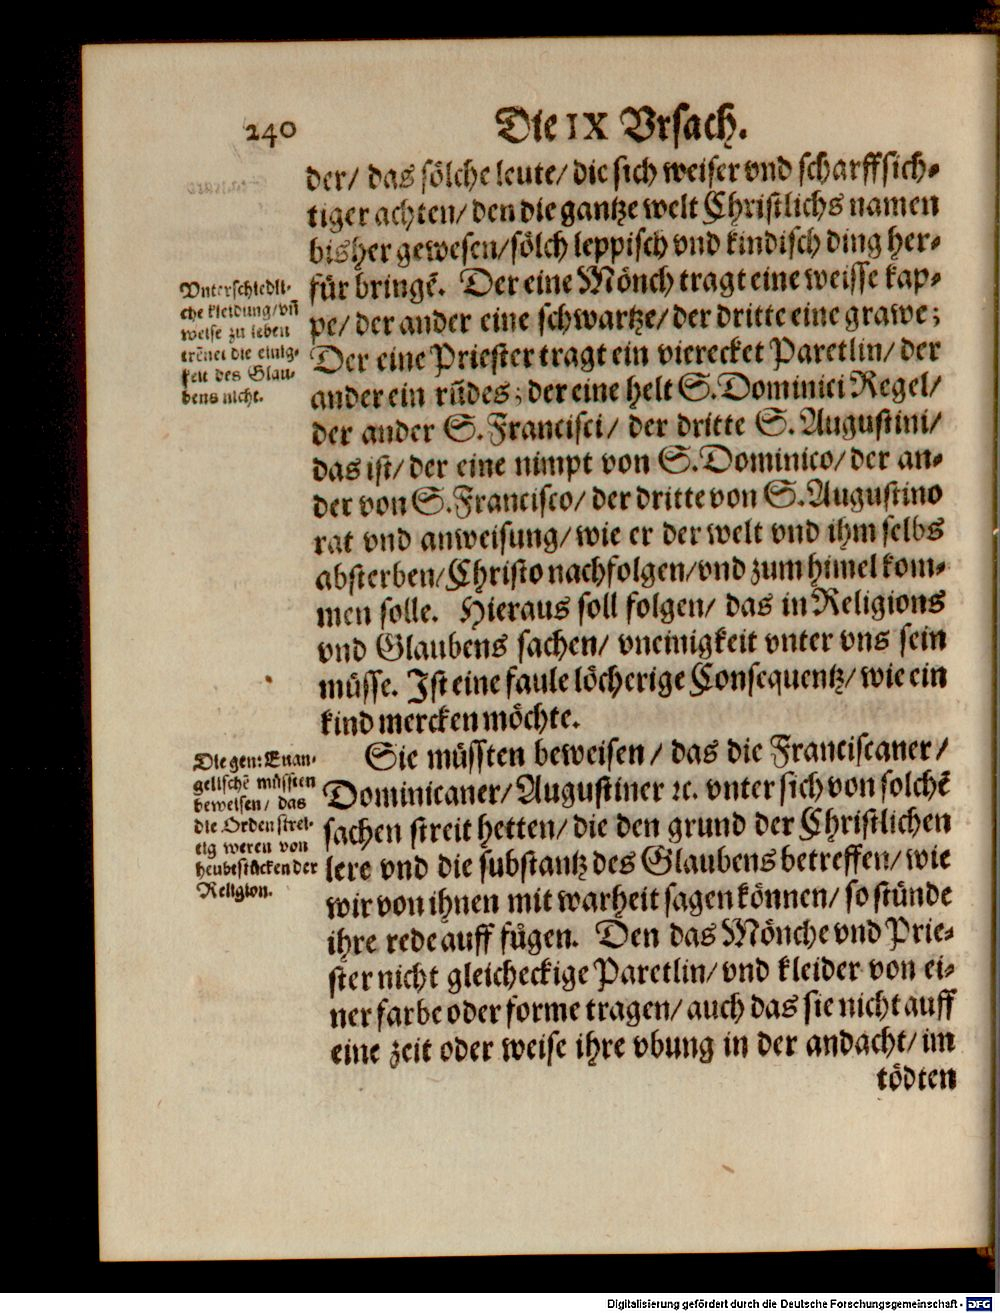 240
Die IX Vrsach.
der/ das sölche leute/ die sich weiser vnd scharffsich-
tiger achten/ den die gantze welt Christlichs namen
bisher gewesen/ sölch leppisch vnd kindisch ding her-
für bringẽ. Der eine Mönch tragt eine weisse kap-
pe/ der ander eine schwartze/ der dritte eine grawe;
Der eine Priester tragt ein vierecket Paretlin/ der
ander ein rũdes; der eine helt S. Dominici Regel/
der ander S. Francisci/ der dritte S. Augustini/
das ist/ der eine nimpt von S. Dominico/ der an-
der von S. Francisco/ der dritte von S. Augustino
rat vnd anweisung/ wie er der welt vnd ihm selbs
absterben/ Christo nachfolgen/ vnd zum himel kom-
men solle. Hieraus soll folgen/ das in Religions
vnd Glaubens sachen/ vneinigkeit vnter vns sein
müsse. Ist eine faule löcherige Consequentz/ wie ein
kind mercken möchte.
Vnterschiedli-
che kleidung/ vñ
weise zu leben
trẽnet die einig-
keit des Glau-
bens nicht.
Sie müssten beweisen/ das die Franciscaner/
Dominicaner/ Augustiner ꝛc. vnter sich von solchẽ
sachen streit hetten/ die den grund der Christlichen
lere vnd die substantz des Glaubens betreffen/ wie
wir von ihnen mit warheit sagen können/ so stünde
ihre rede auff fügen. Den das Mönche vnd Prie-
ster nicht gleicheckige Paretlin/ vnd kleider von ei-
ner farbe oder forme tragen/ auch das sie nicht auff
eine zeit oder weise ihre vbung in der andacht/ im
tödten
Die gen: Euan-
gelischẽ müssten
beweisen/ das
die Orden strei-
tig weren von
heubtstücken der
Religion.
Digitalisierung gefördert durch die Deutsche Forschungsgemeinschaft - DFG